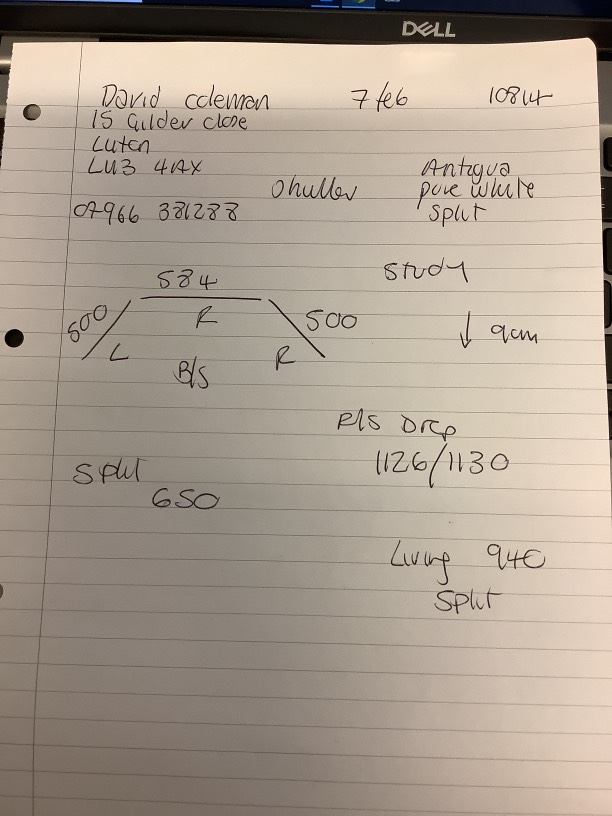 DELL
David Coleman 7 feb 10814
15 Gilder close
Luton
LU3 4AX
07966 381288
Antigua
pure white
split
Study
584
500 R 500
L R
B/S
↓ 9cm
R/S Drop
1126/1130
Split
650
Living 940
Split